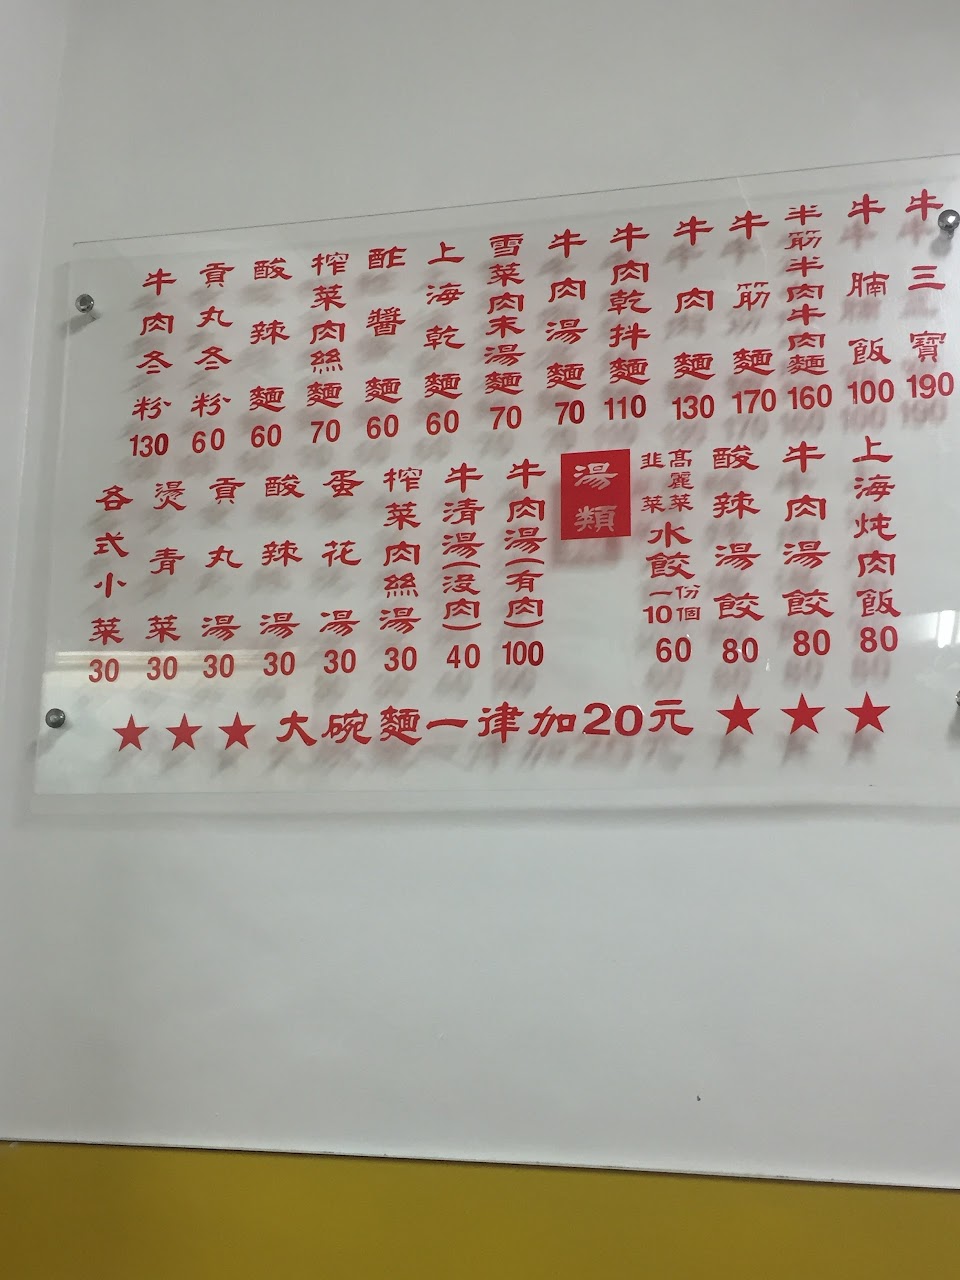 牛三寶 190
牛腩飯 100
半筋半肉牛肉麵 160
牛筋麵 170
牛肉麵 130
牛肉乾拌麵 110
牛肉湯麵 70
雪菜肉末湯麵 70
上海乾麵 60
酢醬麵 60
榨菜肉絲麵 70
酸辣麵 60
貢丸冬粉 60
牛肉冬粉 130
上海炖肉飯 80
牛肉湯餃 80
酸辣湯餃 80
高麗菜 韭菜 水餃 一份10個 60
湯類
牛肉湯(有肉) 100
牛清湯(沒肉) 40
榨菜肉絲湯 30
蛋花湯 30
酸辣湯 30
貢丸湯 30
燙青菜 30
各式小菜 30
★★★大碗麵一律加20元★★★